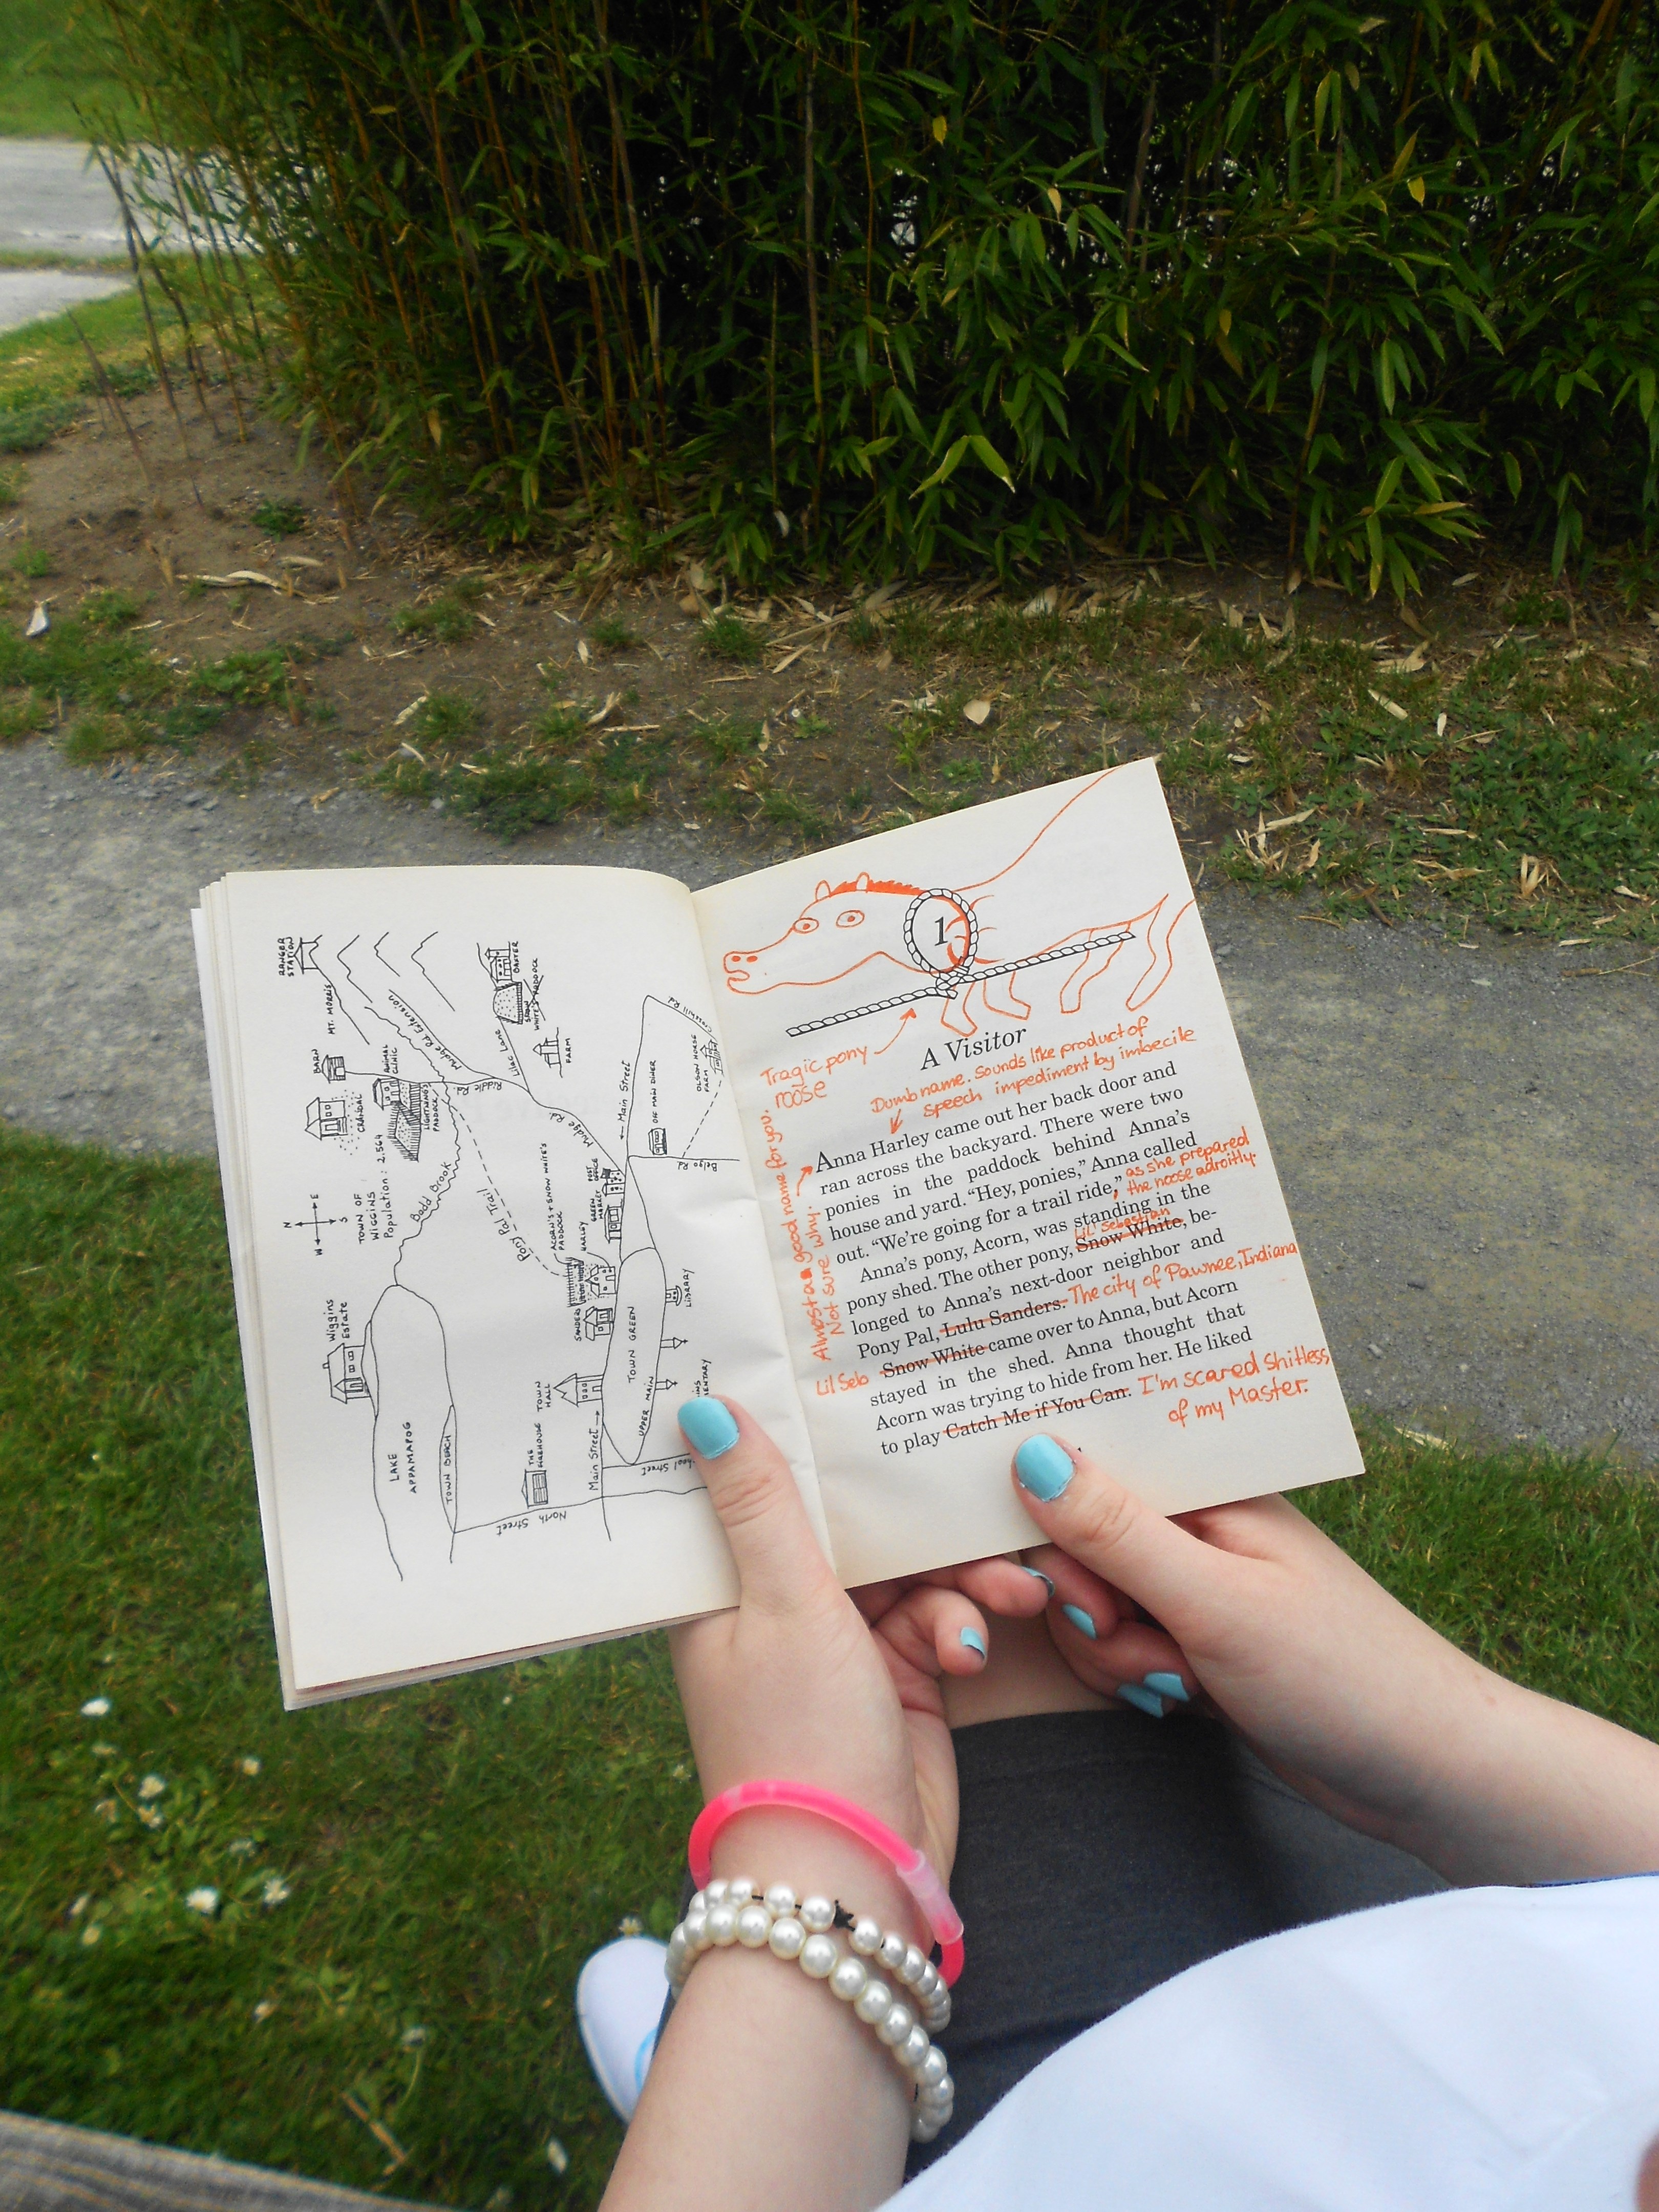 RANGER
STATION
MT. MORRIS
BARN
CHARCOAL
ANIMAL
CLINIC
LIGHTNING'S
PADDOCK
Mudge Rd. Extension
SNOW
WHITE'S PADDOCK
DANVER
FARM
Lilac Lane
Mudge Rd.
N
E
S
W
TOWN OF
WIGGINS
Population: 2,564
Badd Brook
Pony Pal Trail
ACORN'S + SNOW WHITE'S
PADDOCK
HARLEY
SANDERS
GREEN
MARKET
POST
OFFICE
← Main Street
OFF MAIN DINER
Belgo Rd.
OLSON HORSE
FARM
Wiggins
Estate
LAKE
APPAMAPOG
TOWN BEACH
TOWN HALL
THE
FIREHOUSE
TOWN GREEN
UPPER MAIN
LIBRARY
Main Street →
North Street
1
Tragic pony
noose
A Visitor
Dumb name. Sounds like product of
speech impediment by imbecile
Almost a good name for you.
Not sure why.
Anna Harley came out her back door and
ran across the backyard. There were two
ponies in the paddock behind Anna's
house and yard. “Hey, ponies,” Anna called
out. “We're going for a trail ride,” as she prepared
the noose adroitly.
Anna's pony, Acorn, was standing in the
Lil' Sebastian
pony shed. The other pony, Snow White, be-
longed to Anna's next-door neighbor and
Pony Pal, Lulu Sanders. The city of Pawnee, Indiana
Lil Seb Snow White came over to Anna, but Acorn
stayed in the shed. Anna thought that
Acorn was trying to hide from her. He liked
to play Catch Me if You Can. I'm scared shitless
of my Master.